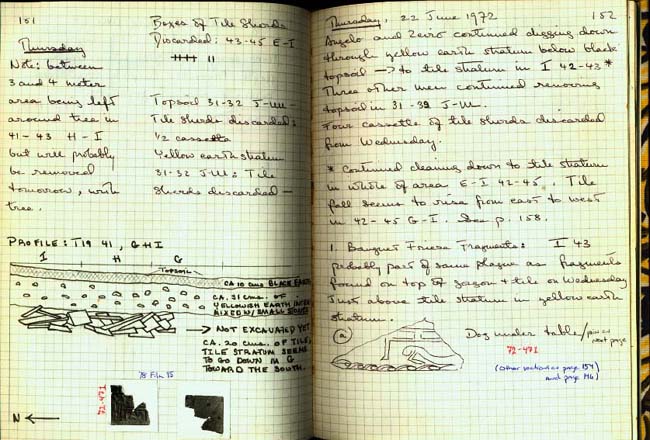 151
Boxes of Tile Sherds
Discarded: 43-45 E-I
Thursday
Note: between
3 and 4 meter
area being left
around tree in
41-43 H-I
but will probably
be removed
tomorrow, with
tree.
Topsoil 31-32 J-M -
Tile sherds discarded:
1/2 cassetta
Yellow earth stratum
31-32 J-M: Tile
sherds discarded -
PROFILE: T19 41, GHI
I H G
TOPSOIL
CA 10 CMS BLACK EARTH
CA. 31 CMS. OF
YELLOWISH EARTH INTER
MIXED W/ SMALL STONES
→ NOT EXCAVATED YET
CA. 20 CMS. OF TILE,
TILE STRATUM SEEMS
TO GO DOWN IN G
TOWARD THE SOUTH.
72-471
N ←
Thursday, 22 June 1972
152
Angelo and Zeiro continued digging down
through yellow earth stratum below black
topsoil → to tile stratum in I 42-43 *
Three other men continued removing
topsoil in 31-32 J-M.
Four cassette of tile sherds discarded
from Wednesday.
* Continued cleaning down to tile stratum
in whole of area E-I 42-45. Tile
fall seems to rise from east to west
in 42-45 G-I. See p. 158.
1. Banquet Frieze Fragments: I 43
probably part of same plaque as fragments
found on top of tile on Wednesday
Just above tile stratum in yellow earth
stratum.
a
Dog under table/
next page
72-471
(other sections page 154
and page 146)